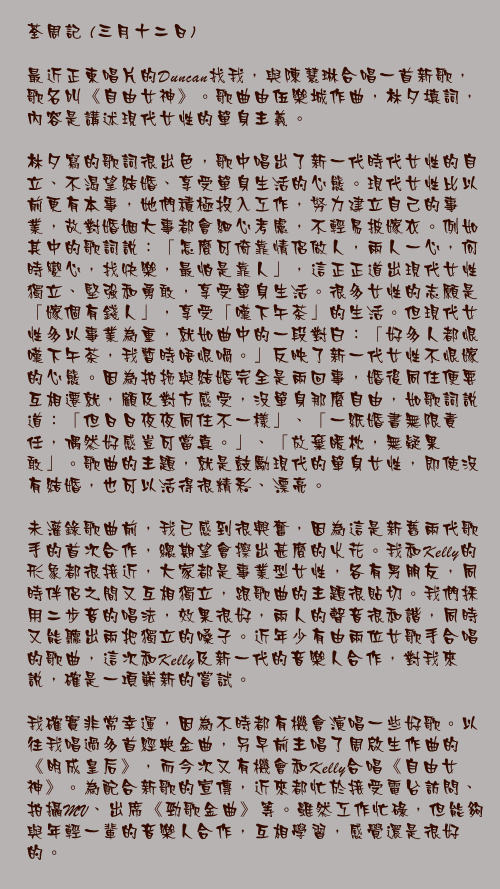 荃周記 (三月十二日)
最近正東唱片的Duncan找我，與陳慧琳合唱一首新歌，
歌名叫《自由女神》。歌曲由伍樂城作曲，林夕填詞，
內容是講述現代女性的單身主義。
林夕寫的歌詞很出色，歌中唱出了新一代時代女性的自
立、不渴望結婚、享受單身生活的心態。現代女性比以
前更有本事，她們積極投入工作，努力建立自己的事
業，故對婚姻大事都會細心考慮，不輕易披嫁衣。例如
其中的歌詞說：「怎麼可倚靠情侶做人，兩人一心，何
時變心，找快樂，最怕是靠人」，這正正道出現代女性
獨立、堅強和勇敢，享受單身生活。很多女性的志願是
「嫁個有錢人」，享受「嘆下午茶」的生活。但現代女
性多以事業為重，就如曲中的一段對白：「好多人都恨
嘆下午茶，我暫時唔恨喎。」反映了新一代女性不恨嫁
的心態。因為拍拖與結婚完全是兩回事，婚後同住便要
互相遷就，顧及對方感受，沒單身那麼自由，如歌詞說
道：「但日日夜夜同住不一樣」、「一紙婚書無限責
任，偶然好感豈可當真。」、「放棄暖枕，無疑果
敢」。歌曲的主題，就是鼓勵現代的單身女性，即使沒
有結婚，也可以活得很精彩、漂亮。
未灌錄歌曲前，我已感到很興奮，因為這是新舊兩代歌
手的首次合作，總期望會擦出甚麼的火花。我和Kelly的
形象都很接近，大家都是事業型女性，各有男朋友，同
時伴侶之間又互相獨立，跟歌曲的主題很貼切。我們採
用二步音的唱法，效果很好，兩人的聲音很和諧，同時
又能聽出兩把獨立的嗓子。近年少有由兩位女歌手合唱
的歌曲，這次和Kelly及新一代的音樂人合作，對我來
說，確是一項嶄新的嘗試。
我確實非常幸運，因為不時都有機會演唱一些好歌。以
往我唱過多首經典金曲，另早前主唱了周啟生作曲的
《明成皇后》，而今次又有機會和Kelly合唱《自由女
神》。為配合新歌的宣傳，近來都忙於接受電台訪問、
拍攝MV、出席《勁歌金曲》等。雖然工作忙碌，但能夠
與年輕一輩的音樂人合作，互相學習，感覺還是很好
的。